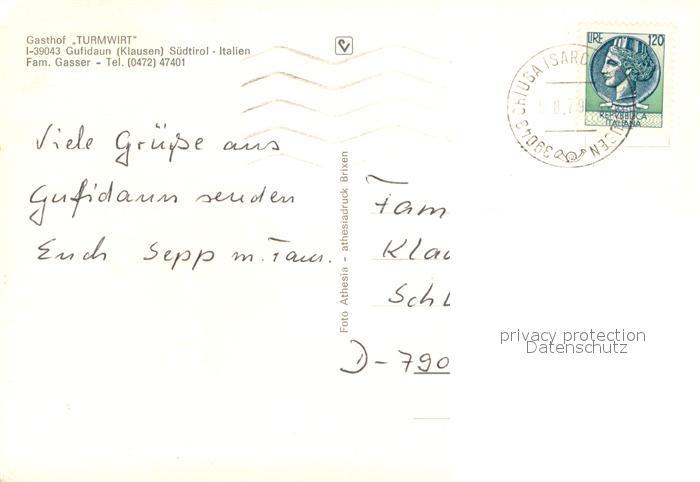 Gasthof „TURMWIRT"
I-39043 Gufidaun (Klausen) Südtirol - Italien
Fam. Gasser - Tel. (0472) 47401
LIRE 120
REPVBBLICA
ITALIANA
39043 CHIUSA ISARCO
Viele Grüße aus
Gufidaun senden
Euch Sepp m. Fam.
Foto Athesia - athesiadruck Brixen
Fam
Kla
Sch
D-790
privacy protection
Datenschutz